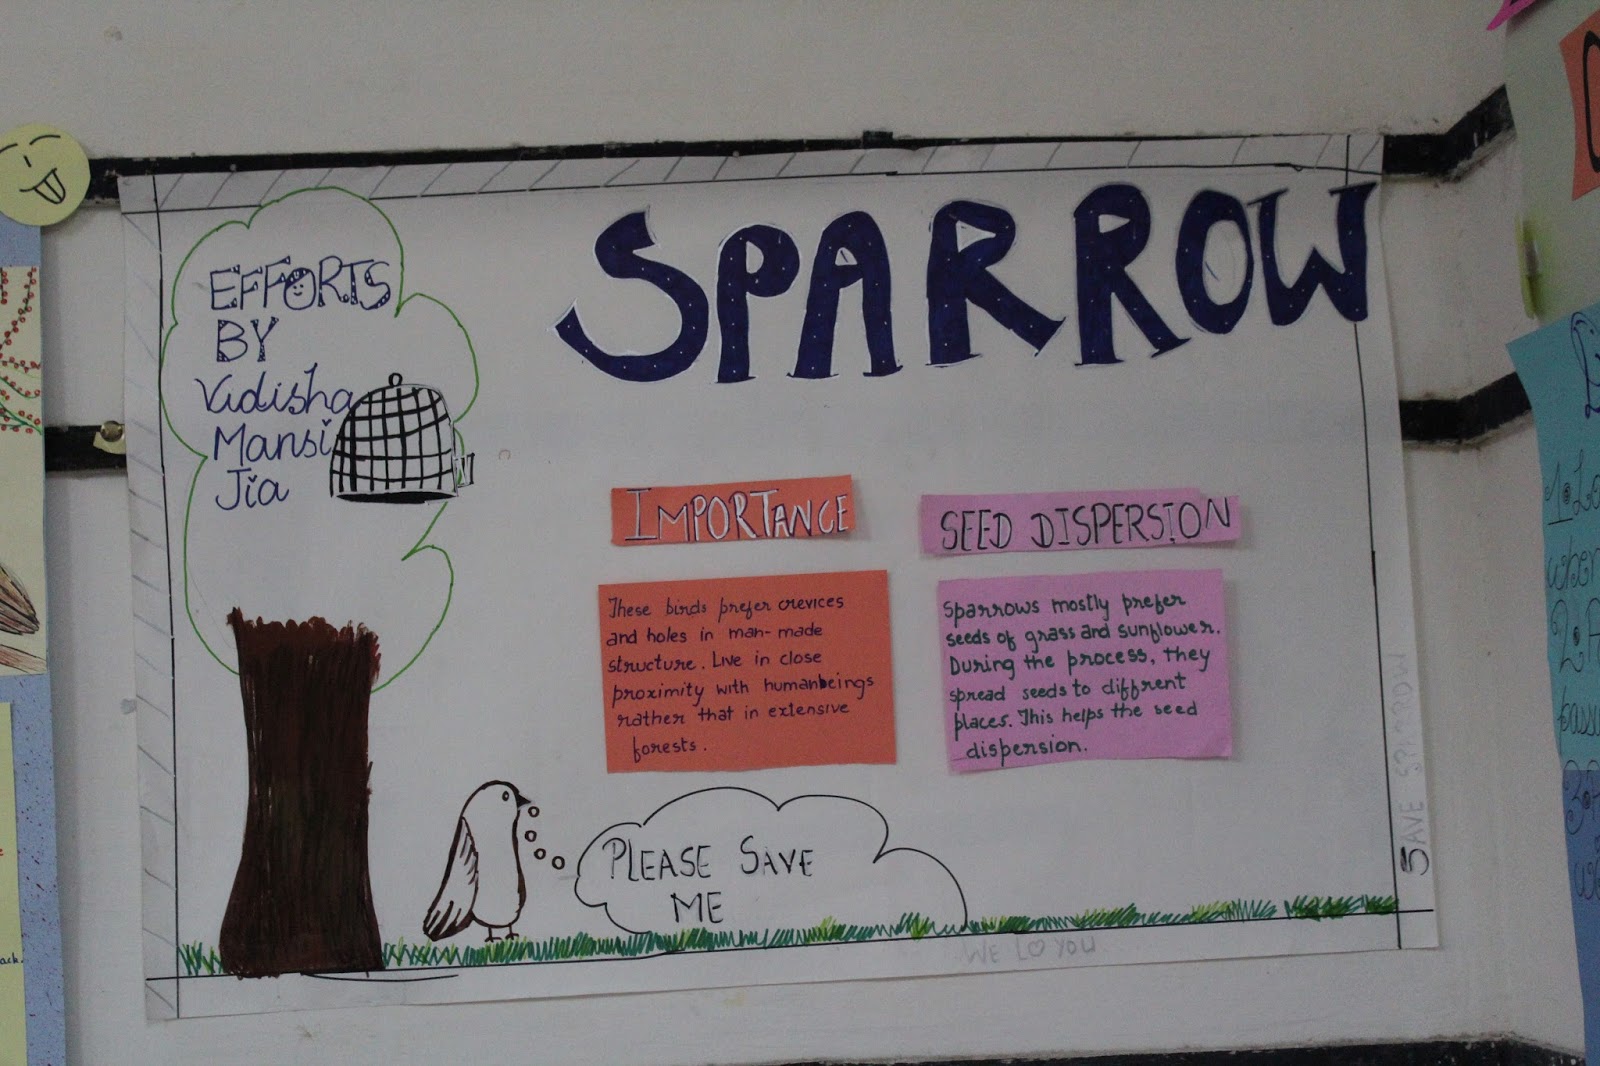 SPARROW
EFFORTS
BY
Vidisha
Mansi
Jia
IMPORTANCE
These birds prefer crevices
and holes in man-made
structure. Live in close
proximity with humanbeings
rather that in extensive
forests.
SEED DISPERSION
Sparrows mostly prefer
seeds of grass and sunflower.
During the process, they
spread seeds to diffrent
places. This helps the seed
dispersion.
PLEASE SAVE
ME
WE LOVE YOU
SAVE SPARROW
ack.
1.
2.
3.